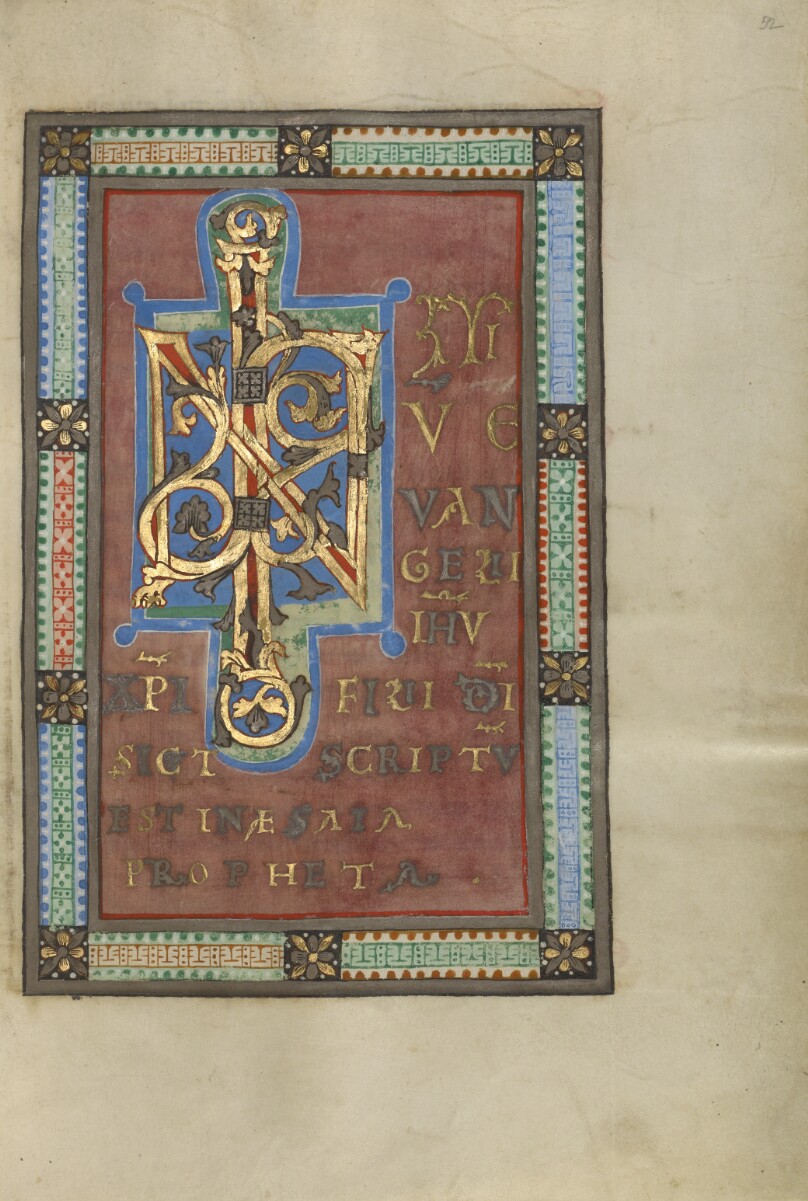 52
IN
ITI
V E
VAN
GELII
IHV̅
XP̅I FILII D̅I
SICT SCRIPTV̅
EST IN ÆSAIA
PROPHETA .